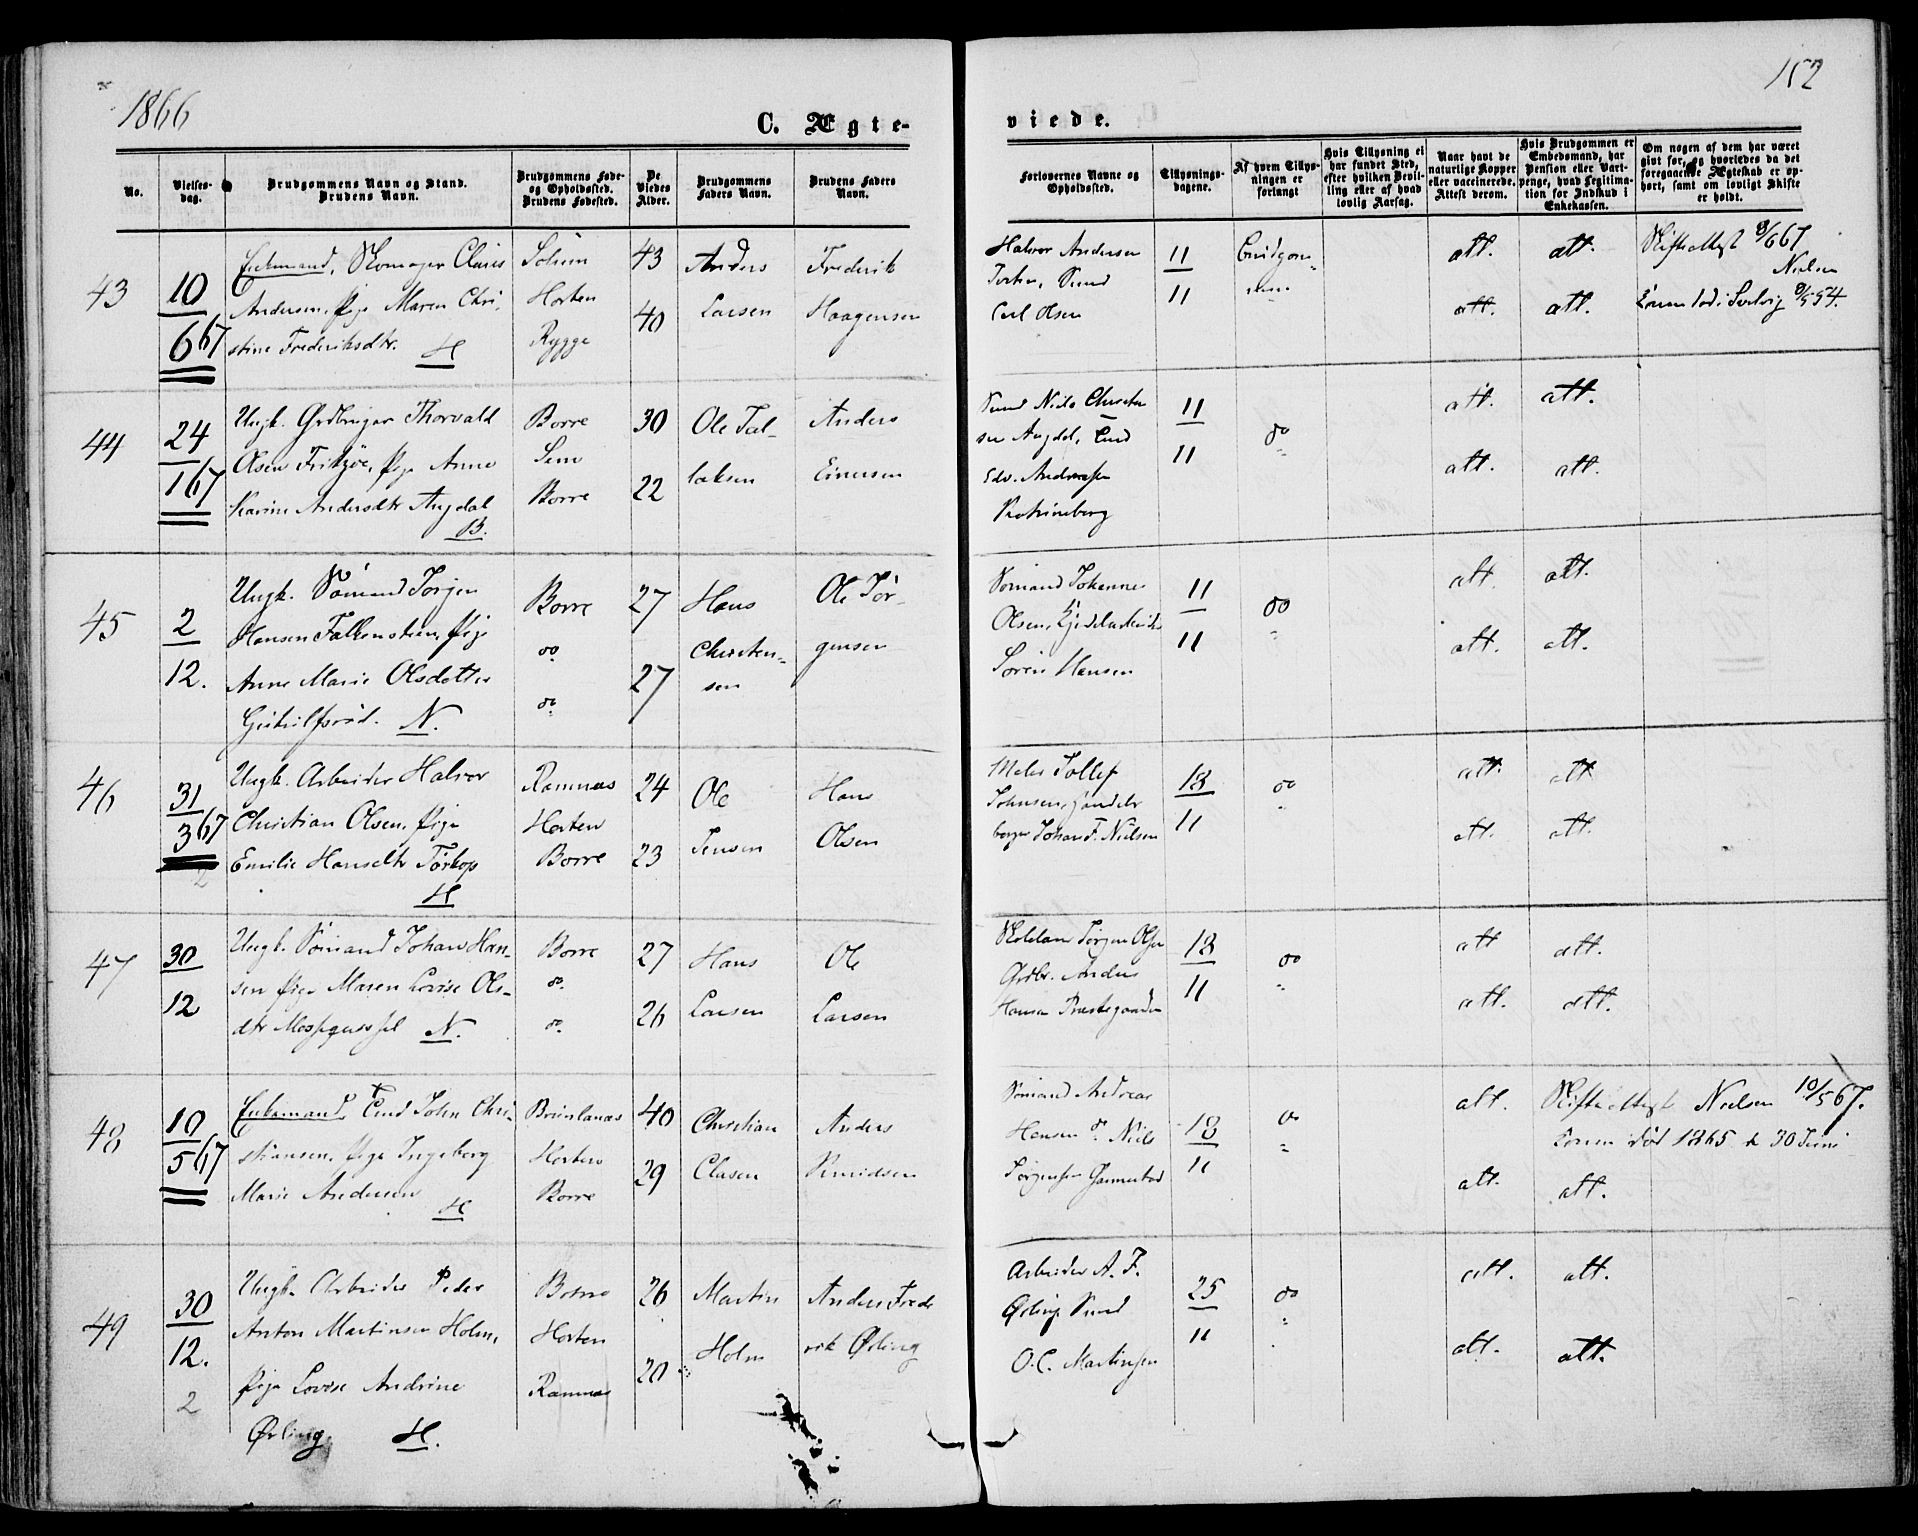 1866
152
C. Ægte-
viede.
No.
Vielses-
dag.
Brudgommens Navn og Stand.
Brudens Navn.
Brudgommens Føde-
og Opholdssted.
Brudens Fødested.
De
Viedes
Alder.
Brudgommens
Faders Navn.
Brudens Faders
Navn.
Forlovernes Navne og
Opholdssted.
Tillysnings-
dagene.
Af hvem Tillys-
ningen er
forlangt
Hvis Tillysning ei
har fundet Sted,
efter hvilken Bevil-
ling eller af hvad
lovlig Aarsag.
Naar havt de
naturlige Kopper
eller vaccinerede.
Attest derom.
Hvis Brudgommen er
Embedsmand, har
Pension eller Vart-
penge, hvad Legitima-
tion for Indskud i
Enkekassen.
Om nogen af dem har været
givt før, og hvorledes da det
foregaaende Ægteskab er op-
hørt, samt om lovligt Skifte
er holdt.
43
10
6 67
Enkemand, Skomager
Andersen, Pige Maren Chri-
stine Fredriksdtr. H
Solum
Horten
Rygge
43
40
Anders
Larsen
Frederik
Haagensen
Halvor Andersen
Horten, Smed
Carl Olsen
11
11
Brudgom-
men
att. att.
att. att.
Skifteattest 8/6 67
Nielsen
Konen død i Svelvig 8/5 54.
44
24
1 67
Ungk. Grdbruger Thorvald
Olsen, Pige Anne
Karine Andersdtr Augdal
B.
Borre
Sem
Borre
30
22
Ole Tal-
laksen
Anders
Einersen
Smed Niels Christen
sen Augdal,
Edv. Andreassen
11
11
do
att. att.
att. att.
45
2
12.
Ungk. Sømand Jørgen
Hansen Falkensteen, Pige
Anne Marie Olsdatter
N.
Borre
do
do
27
27
Hans
Christen-
sen
Ole Jør-
gensen
Sømand Johannes
Olsen,
Søren Hansen
11
11
do
att. att.
att. att.
46
31
3 67
2
Ungk. Arbeider Halvor
Christian Olsen, Pige
Emilie Hansdtr
H
Ramnæs
Horten
Borre
24
23
Ole
Jensen
Hans
Olsen
Tollef
Johnsen, Handels
borger Johan F. Nielsen
18
11
do
att. att
att. att.
47
30
12
Ungk. Sømand Johan Han-
sen Pige Maren Lovise Ols-
dtr N.
Borre
do
do
27
26
Hans
Larsen
Ole
Larsen
Jørgen Olsen
Grdbr. Anders
Hansen Præstegaarden
18
11
do
att att.
att. att.
48
10
5 67
Enkemand, Tind John Chri-
stiansen, Pige Ingeborg
Marie Andersen H
Brunlanæs
Horten
Borre
40
29
Christian
Clasen
Anders
Knudsen
Sømand Andreas
Hansen do Niels
Jørgensen Gannestad
18
11
do
att. Skifteattest Nielsen 10/5 67.
Konen død 1865 d 30 Juni
att. att.
49
30
12.
2
Ungk. Arbeider Peder
Anton Martinsen Holm,
Pige Lovise Andrine
Ørling. H.
Borre
Horten
Ramnæs
26
20
Martin
Holm
Anders Frede
rik Ørling
Arbeider A. F.
Ørling Smed
O. C. Martinsen
25
11
do
att. att.
att. att.